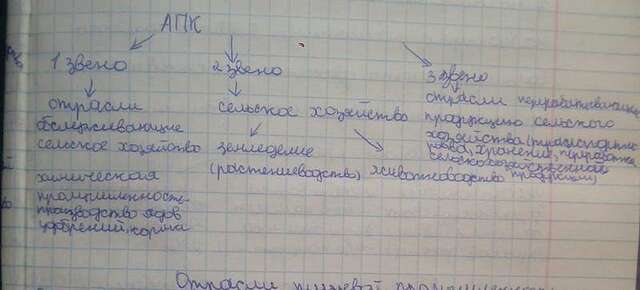 АПК
1 звено 2 звено 3 звено
отрасли сельское хозяйство отрасли перерабатывающие
обслуживающие продукцию сельского
сельское хозяйство земледелие хозяйства (транспортировка, хранение, переработка
химическая (растениеводство) животноводство продукции)
промышленность
производство ядов
удобрений, корма
Отрасли пищевой промышленности